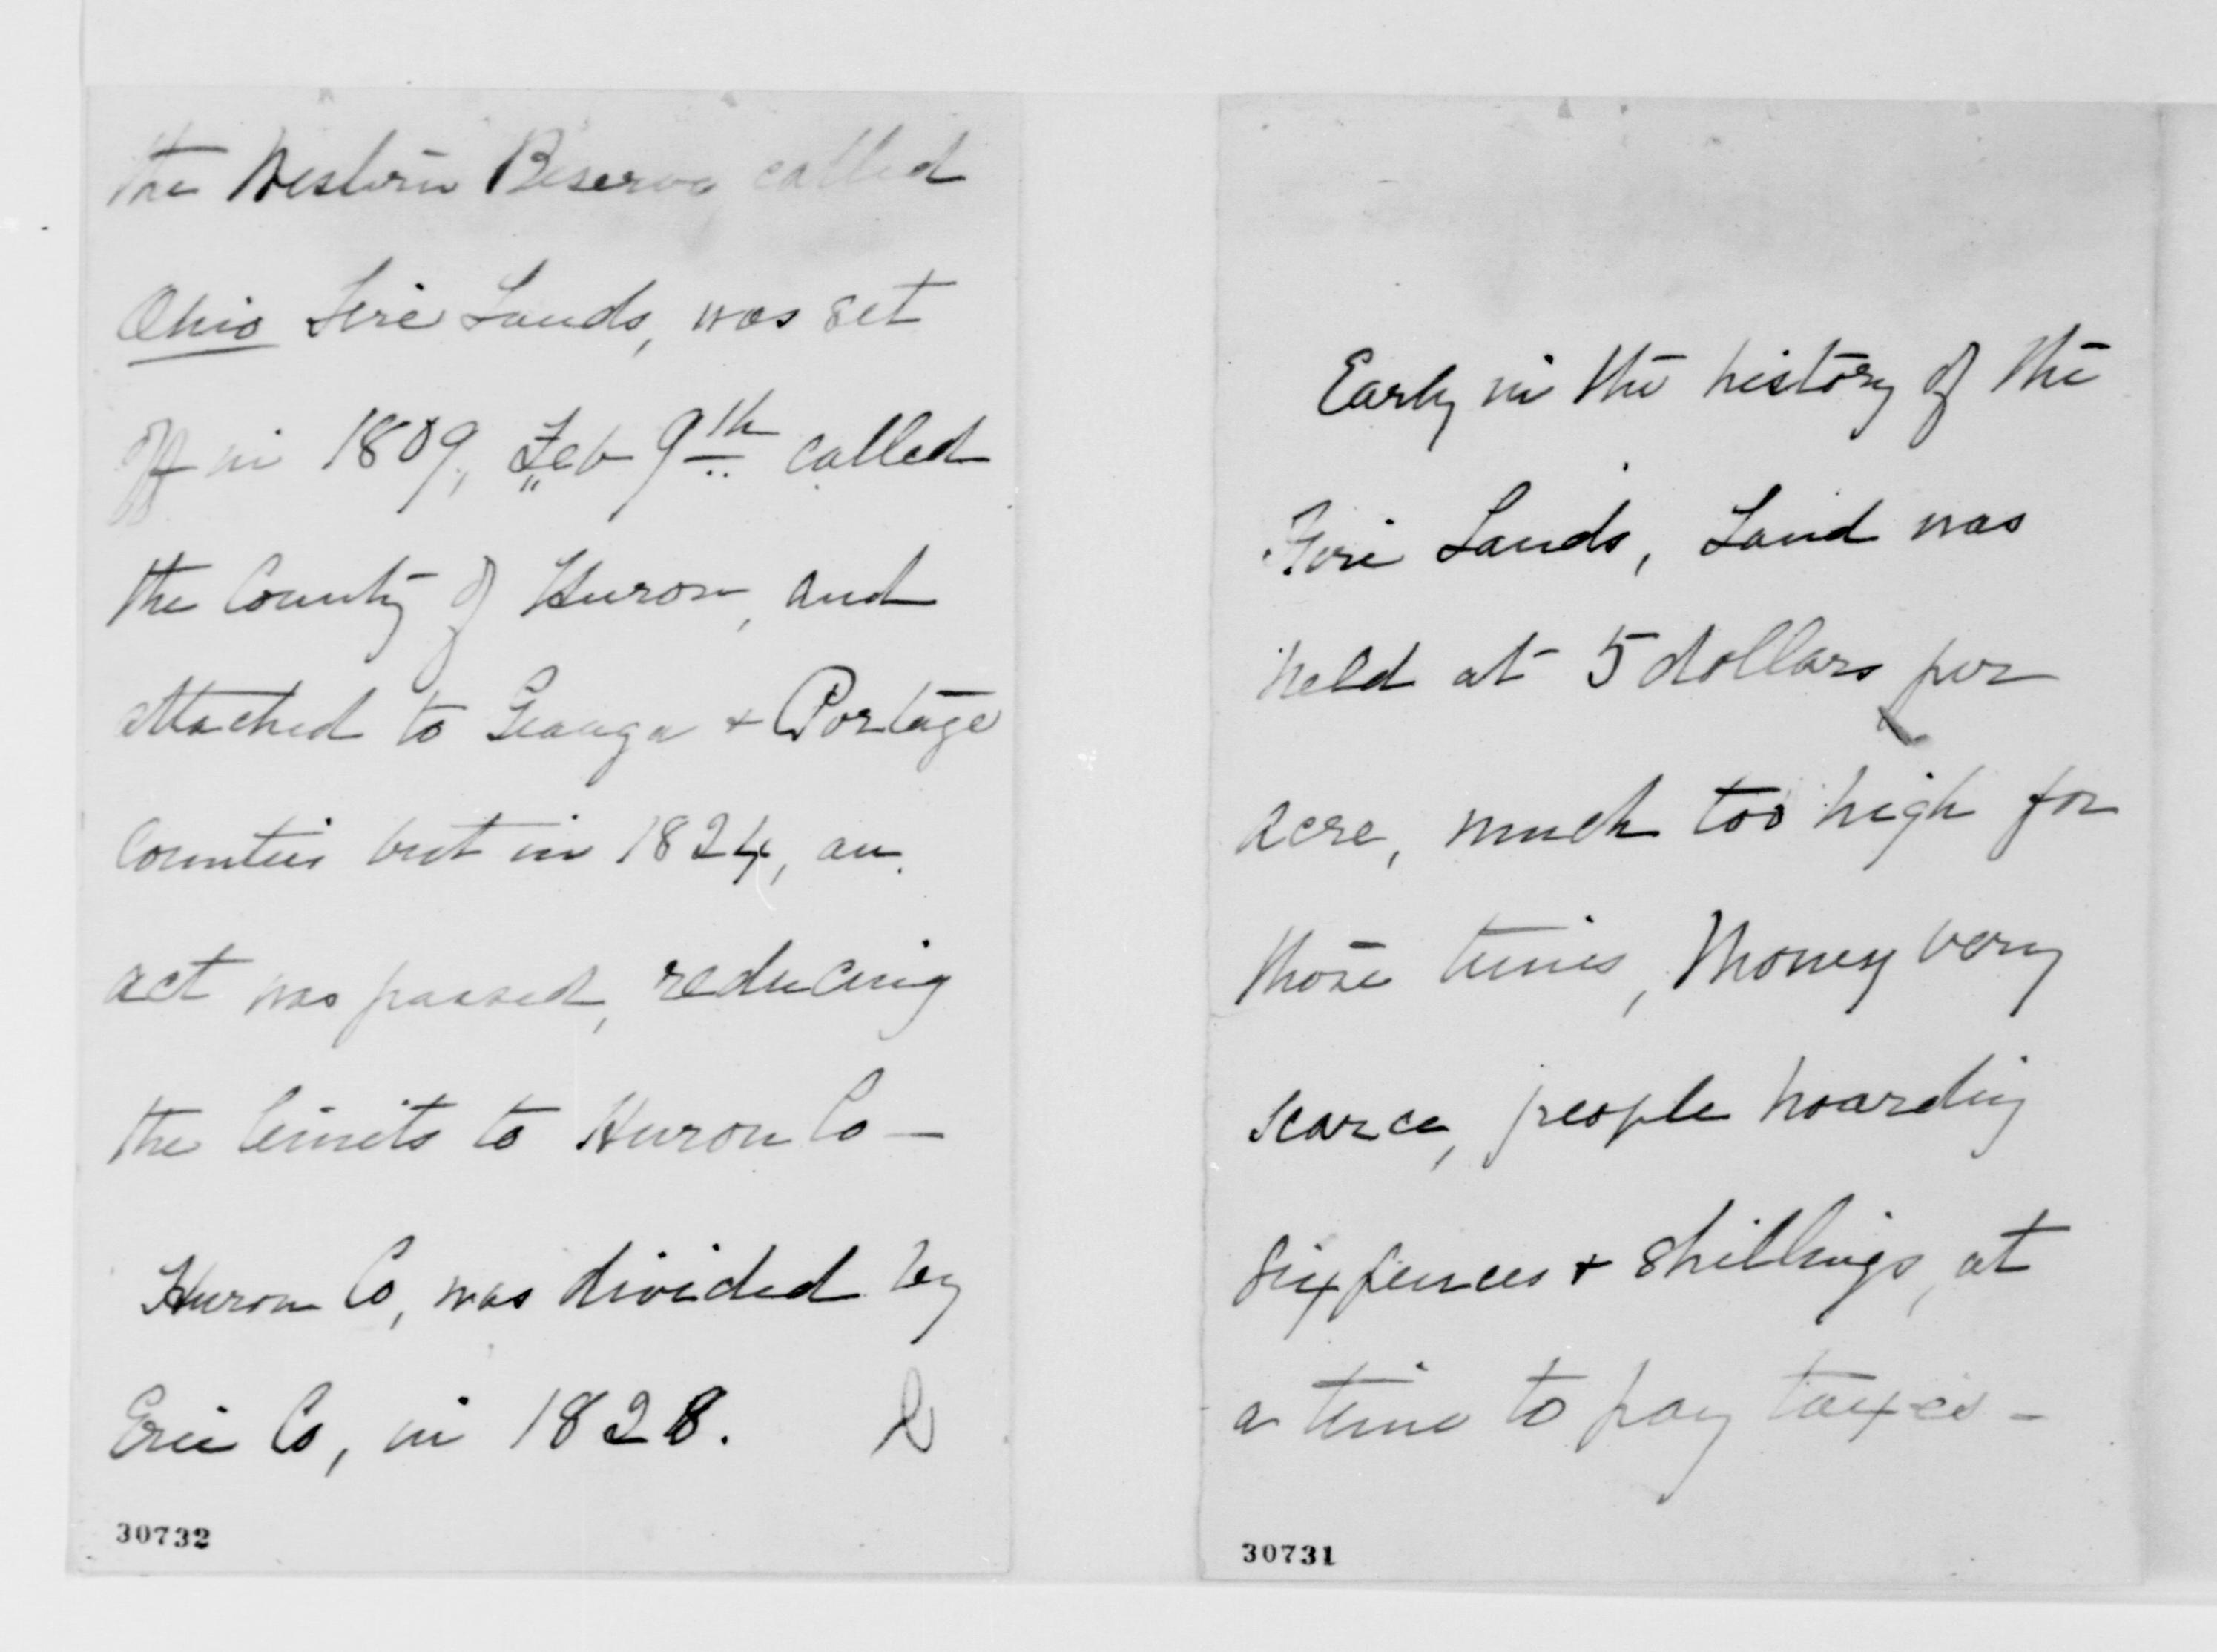 the Western Reserve called
Ohio Fire Lands, was set
off in 1809, Feb 9th called
the County of Huron, and
attached to Geauga + Portage
Counties but in 1824, an
act was passed, reducing
the limits to Huron Co —
Huron Co, was divided by
Erie Co, in 1828.
30732
Early in the history of the
Fire Lands, Land was
held at 5 dollars per
acre, much too high for
those times, Money very
scarce, people hoarding
sixpences + shillings, at
a time to pay taxes -
30731